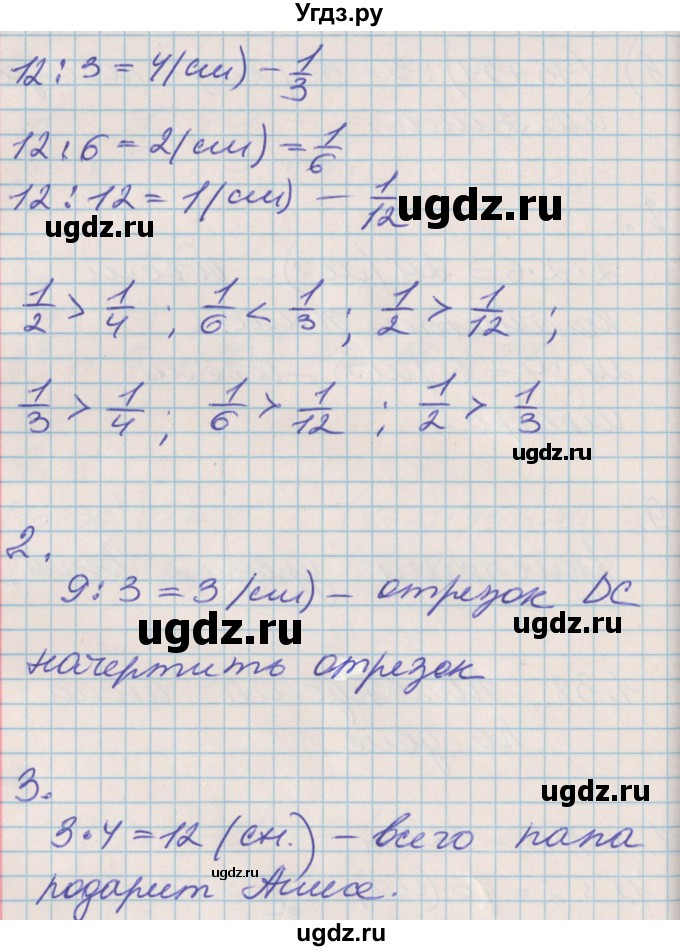 Угдз.ру
12 : 3 = 4 (см) – 1/3
12 : 6 = 2 (см) = 1/6
12 : 12 = 1 (см) – 1/12
ugdz.ru
ugdz.ru
1/2 > 1/4 ; 1/6 < 1/3 ; 1/2 > 1/12 ;
1/3 > 1/4 ; 1/6 > 1/12 ; 1/2 > 1/3
ugdz.ru
2.
9 : 3 = 3 (см) – отрезок DC
ugdz.ru
ugdz.ru
начертить отрезок
3.
ugdz.ru
3 · 4 = 12 (сн.) – всего папа
ugdz.ru
подарит Алисе.
ugdz.ru